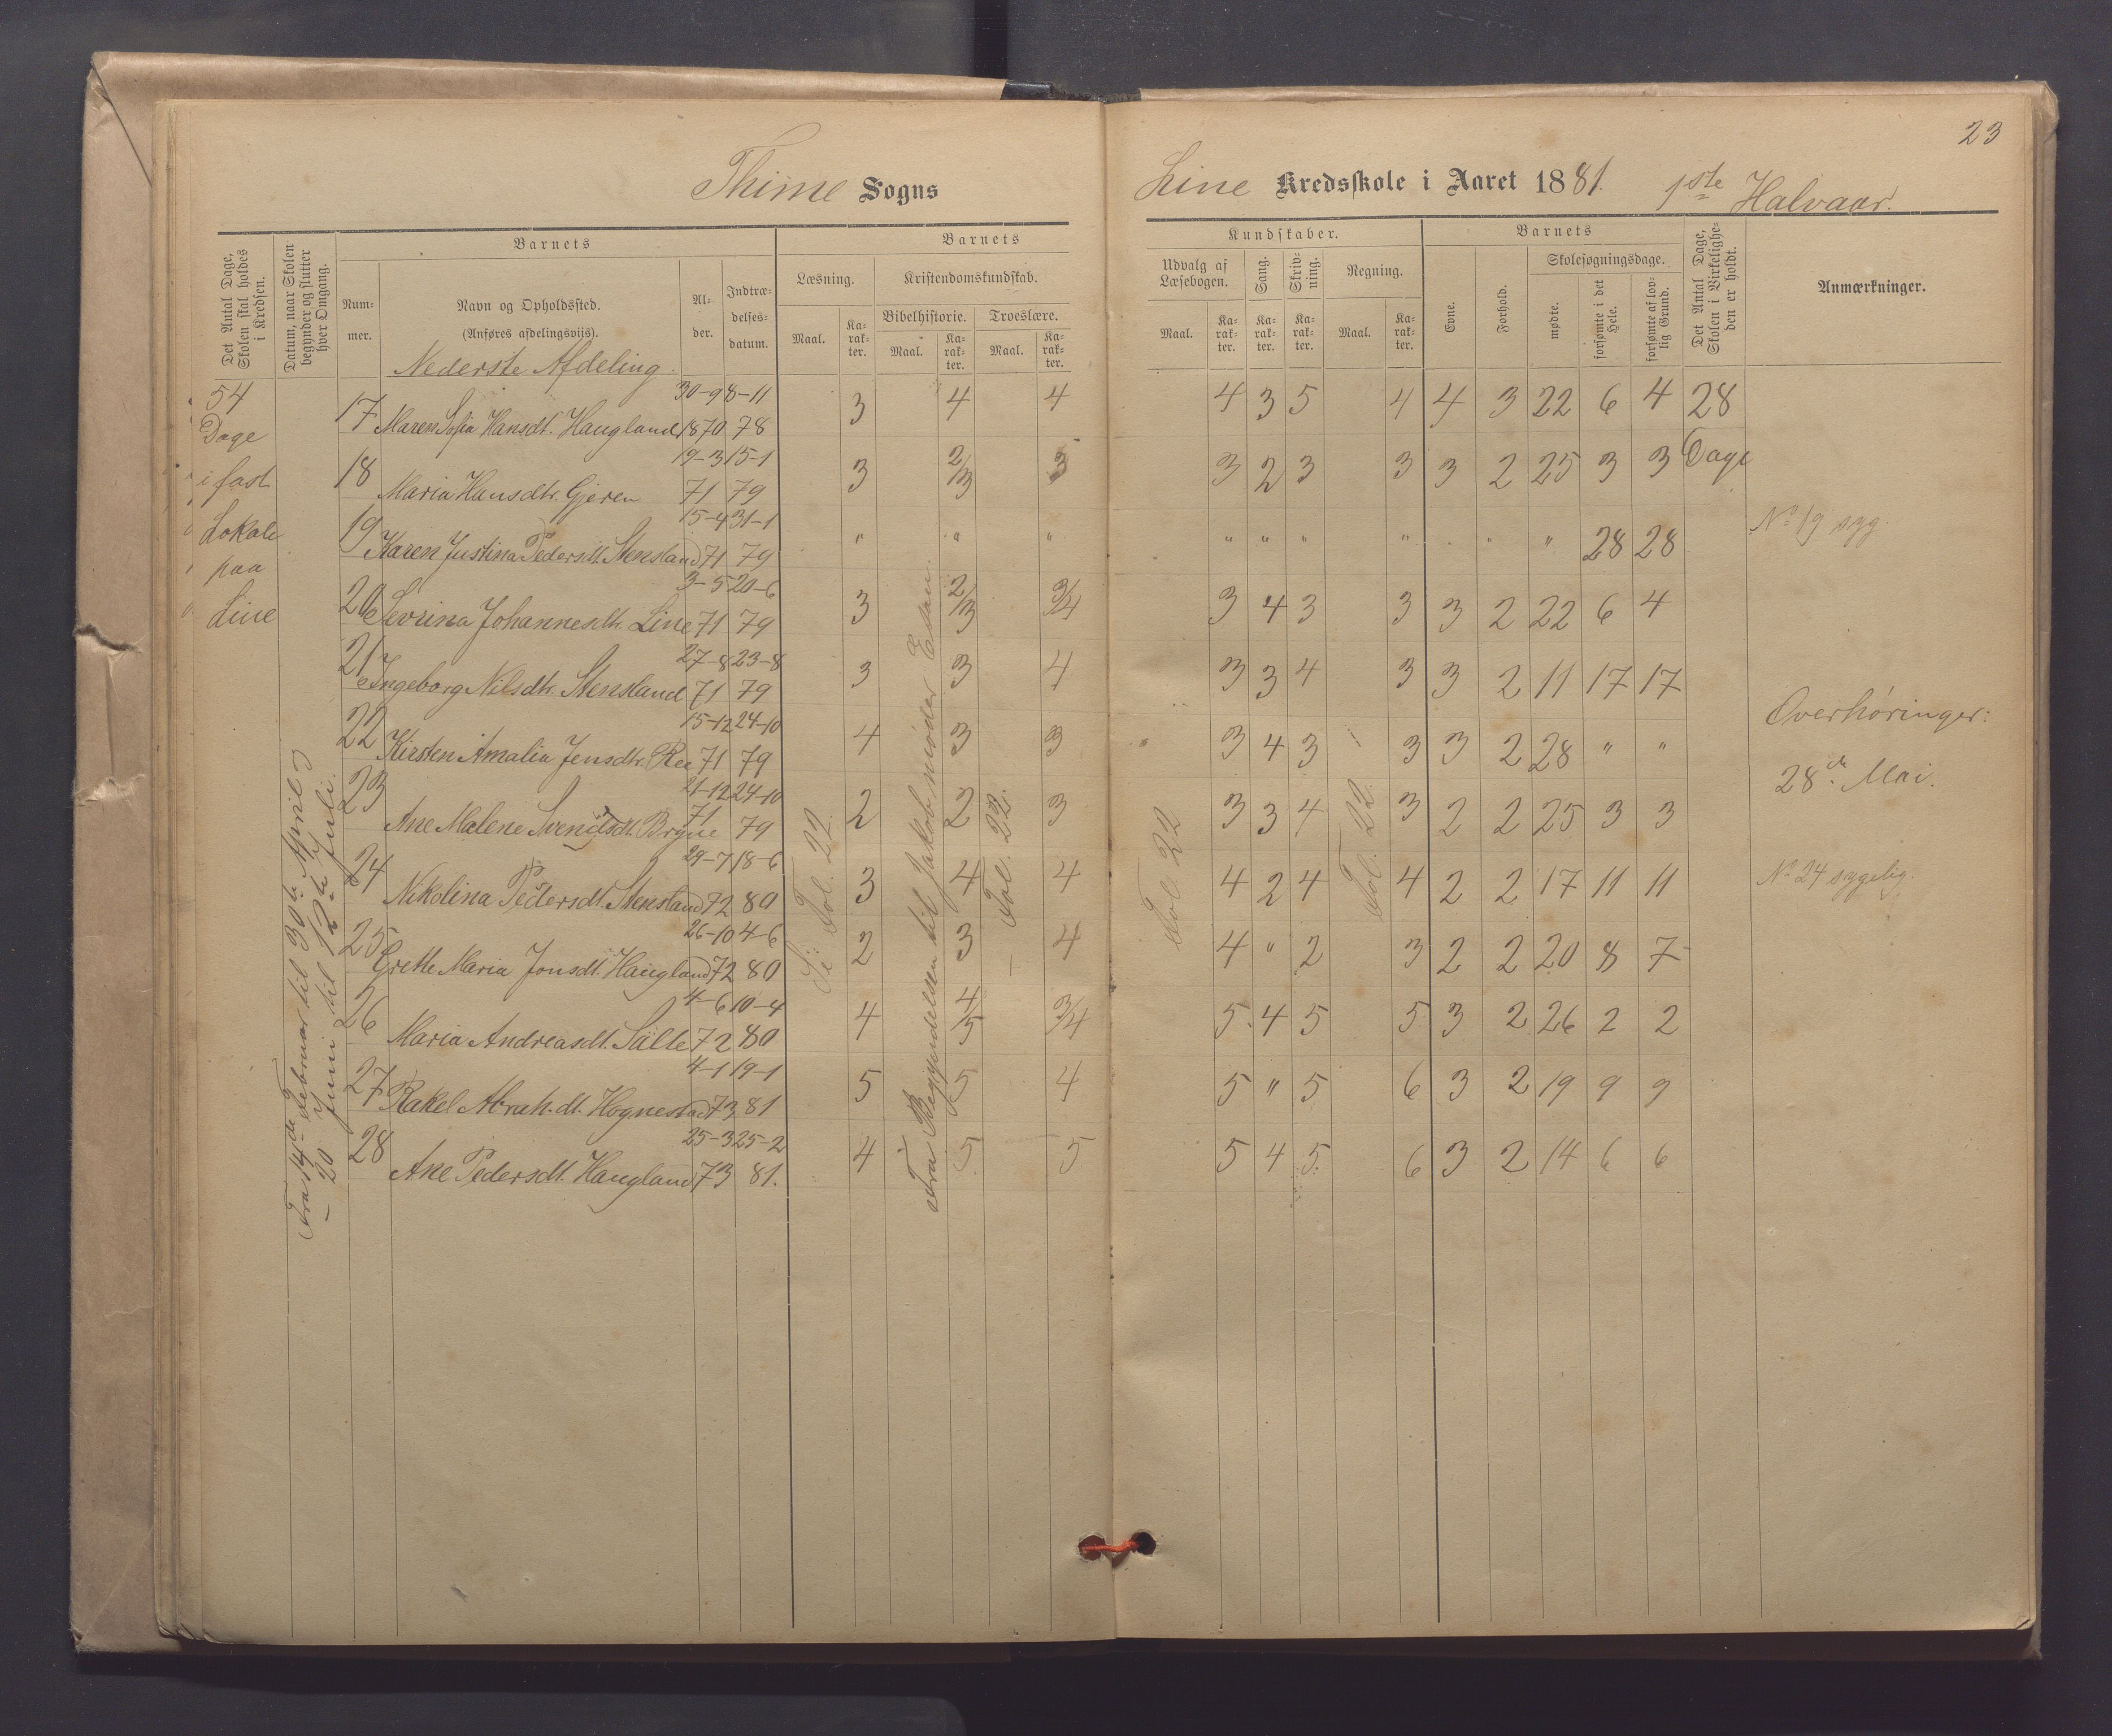 23
Thime Sogns
Line Kredsskole i Aaret 1881. 1ste Halvaar.
Det Antal Dage, Skolen skal holdes i Kredsen.
Datum, naar Skolen begynder og slutter hver Omgang.
Barnets
Num-mer.
Navn og Opholdssted.
(Anføres afdelingsviis).
Al-der.
Indtræ-delses-datum.
Barnets
Læsning.
Kristendomskundskab.
Bibelhistorie. Troeslære.
Maal. Ka-rak-ter. Maal. Ka-rak-ter. Maal. Ka-rak-ter.
Kundskaber.
Udvalg af Læsebogen. Sang. Skriv-ning. Regning.
Maal. Ka-rak-ter. Ka-rak-ter. Ka-rak-ter. Maal. Ka-rak-ter.
Barnets
Evne. Forhold.
Skolesøgningsdage.
mødte. forsømte i det Hele. forsømte af lov-lig Grund.
Det Antal Dage, Skolen i Virkelighe-den er holdt.
Anmærkninger.
Nederste Afdeling.
54
Dage
i fast
Lokale
paa
Line
Fra 14de Februar til 30te April og
– 20 Juni til 12te Juli.
30-9 8-11
17 Maren Sofia Hansdt. Haugland 1870 78 3 4 4 4 3 5 4 4 3 22 6 4 28
Dage
19-3 15-1
18 Maria Hansdtr. Gjeren 71 79 3 2/3 3 3 2 3 3 3 2 25 3 3
15-4 31-1
19 Karen Justina Pedersdt. Stensland 71 79 " " " " " " " " " 28 28 No 19 syg.
3-5 20-6
20 Sevrina Johannesdtr. Line 71 79 3 2/3 3/4 3 4 3 3 3 2 22 6 4
27-8 23-8
21 Ingeborg Nilsdtr. Stensland 71 79 3 3 4 3 3 4 3 3 2 11 17 17
Overhøringer:
15-12 24-10
22 Kirsten Amalia Jensdtr. Ree 71 79 4 3 3 " 3 4 3 3 3 2 28 " "
28de Mai.
21-12 24-10
23 Ane Malene Svendsdt. Bryne 71 79 2 2 3 3 3 4 3 2 2 25 3 3
29-7 18-6
24 Nikolina Pedersdt. Stensland 72 80 3 4 4 4 2 4 4 2 2 17 11 11 No 24 sygelig.
26-10 4-6
25 Grethe Maria Jonsdt. Haugland 72 80 2 3 4 4 " 2 3 2 2 20 8 7
4-6 10-4
26 Maria Andreasdt. Sälte 72 80 4 4/5 3/4 5. 4 5 5 3 2 26 2 2
4-1 19-1
27 Rakel Abrah.dt. Hognestad 73 81 5 5 4 5 " 5 6 3 2 19 9 9
25-3 25-2
28 Ane Pedersdt. Haugland 73 81. 4 5 5 5 4 5. 6 3 2 14 6 6
Se Fol. 22.
Fra Begyndelsen til Jakob møder Esau.
Fol. 22.
Fol. 22
Fol. 22.